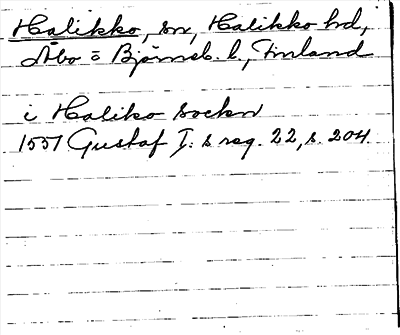 Halikko, sn, Halikko hd,
Åbo o Björneb. l., Finland
i Haliko sockn
1557 Gustaf I: s reg. 22, s. 204.